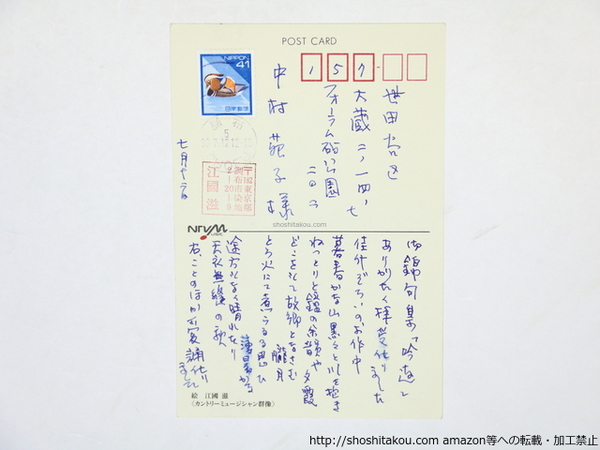 POST CARD
NIPPON
41
日本郵便
157
世田谷区
大蔵二ノ一四ノ七
フォーラム砧公園
二〇二
中村苑子様
七月十六日
〒国東京都
調布市染地
2-20-9
江國滋
shoshitakou.com
御錦句集「吟遊」
ありがたく拝受仕りました
佳什ぞろいのお作中
暮春かな山黒々と川を抱き
ねっとりと鐘の余韻や夕霞
どこをして故郷となさむ朧月
とろ火にて煮らるる思ひ
途方もなく晴れたり
天衣無縫の歌
右、ことのほか
絵 江國 滋
〈カントリーミュージシャン群像〉
http://shoshitakou.com amazon等への転載・加工禁止